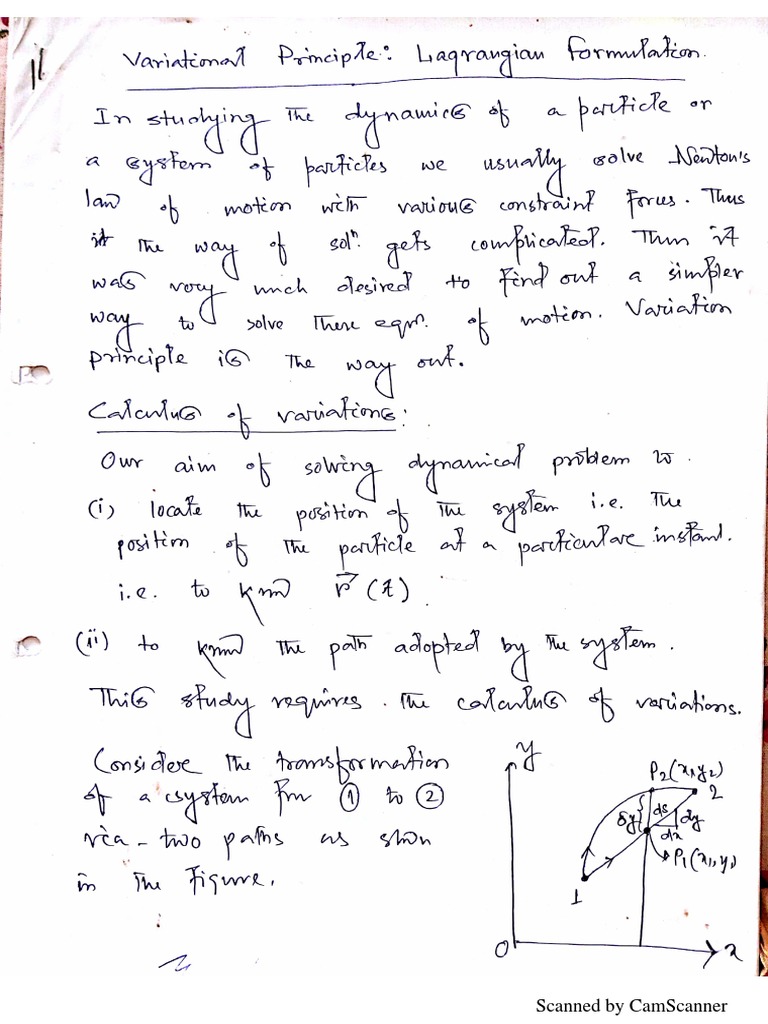 1/
Variational Principle: Lagrangian Formulation.
In studying the dynamics of a particle or
a system of particles we usually solve Newton's
law of motion with various constraint forces. Thus
the way of solⁿ. gets complicated. Thus it
was very much desired to find out a simpler
way to solve these eqnˢ. of motion. Variation
principle is the way out.
Calculus of variations:
Our aim of solving dynamical problem is
(i) locate the position of the system i.e. the
position of the particle at a particular instant.
i.e. to know r⃗ (t)
(ii) to know the path adopted by the system.
This study requires. The calculus of variations.
Consider the transformation
of a system from ① to ②
via two paths as shown
in the figure.
y
P₂(x₁,y₂)
2
δy
ds
dy
dx
P₁(x₁,y₁)
1
O
x
Scanned by CamScanner